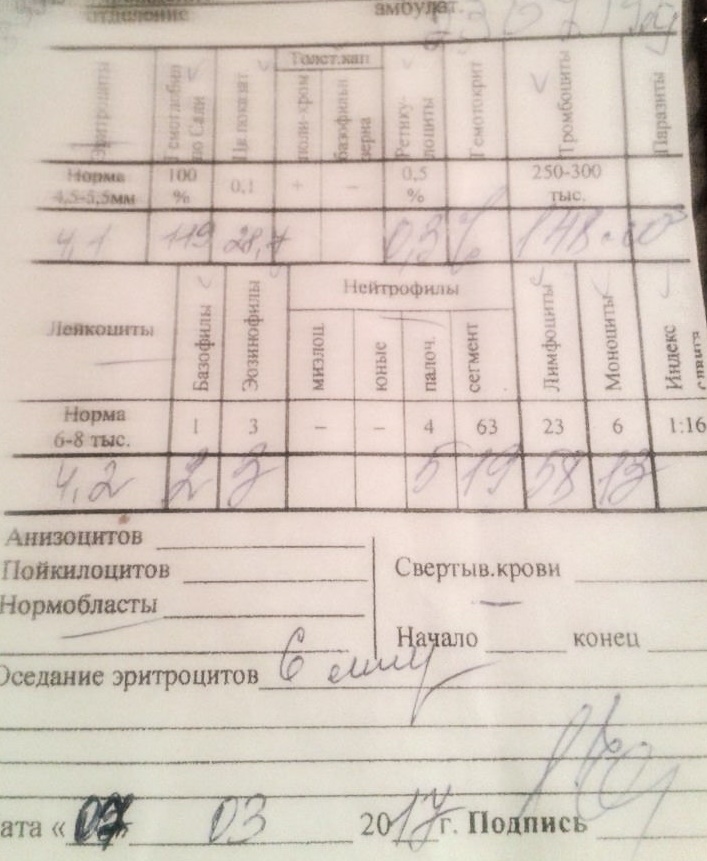 отделение амбулат.
Эритроциты Гемоглобин по Сали Цв показат Толст.кап поли-хром базофильн зерна Ретику-лоциты Гемотокрит Тромбоциты Паразиты
Норма 4,5-5,5мм 100 % 0,1 + – 0,5 % 250-300 тыс.
4,1 119 28,7 0,3% 148
Лейкоциты Базофилы Эозинофилы Нейтрофилы миэлоц. юные палоч. сегмент Лимфоциты Моноциты Индекс
Норма 6-8 тыс. 1 3 – – 4 63 23 6 1:16
4,2 2 3 5 19 58 13
Анизоцитов
Пойкилоцитов Свертыв.крови
Нормобласты
Начало конец
Оседание эритроцитов 6 мм/
ата « 03 2017г. Подпись